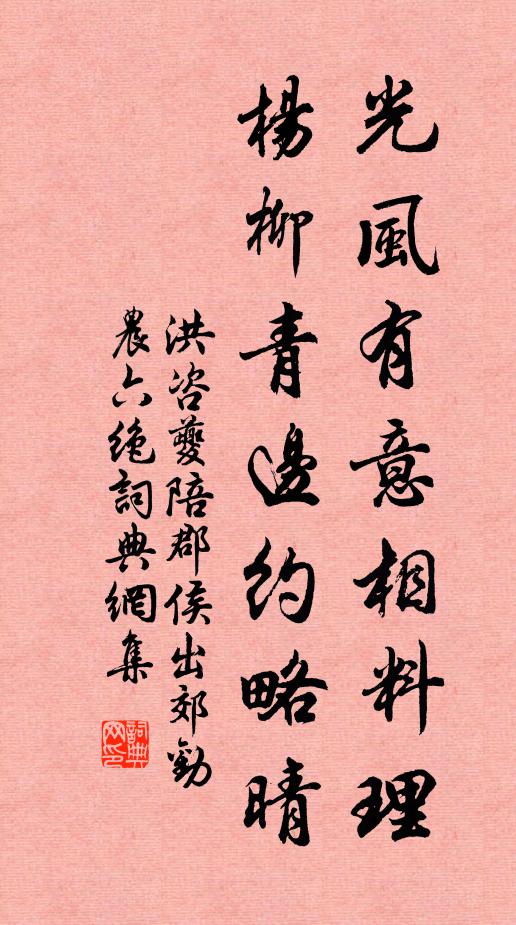 光風有意相料理
楊柳青邊約略晴
洪咨夔陪郡侯出郊勸
農六絕詞典網集
詞典網印